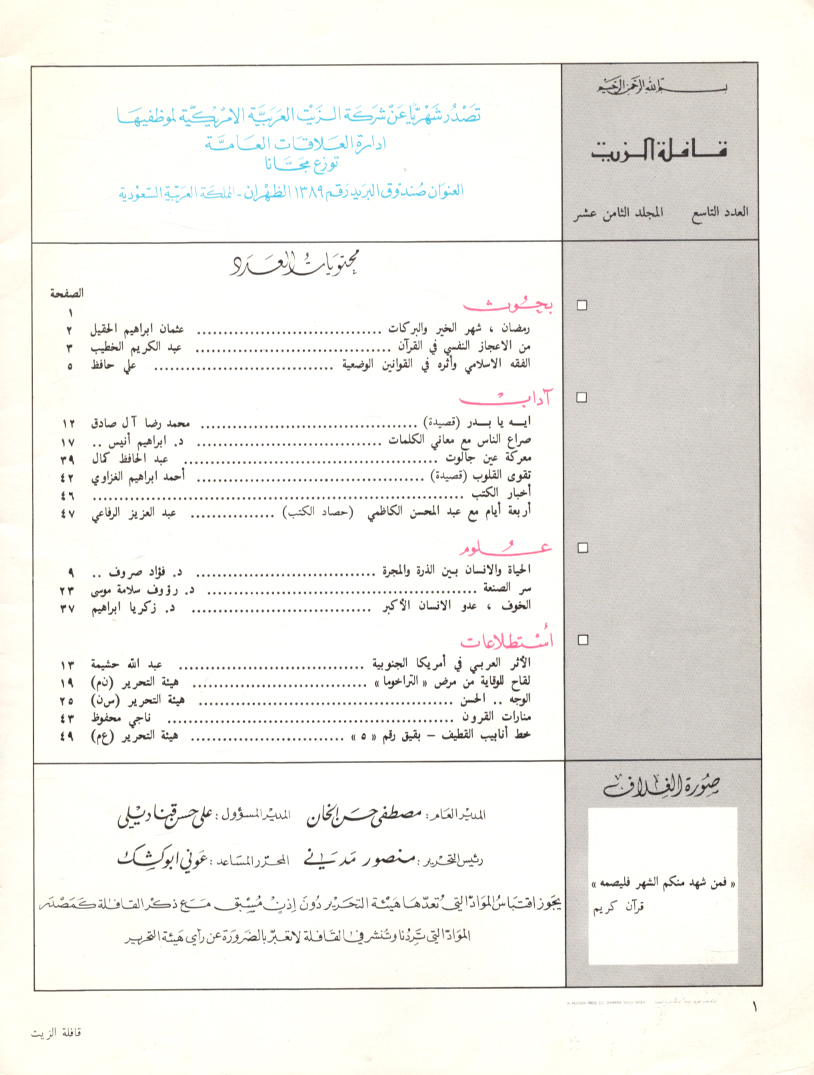 بسم الله الرحمن الرحيم
قافلة الزيت
العدد التاسع المجلد الثامن عشر
تصدر شهريا عن شركة الزيت العربية الامريكية لموظفيها
ادارة العلاقات العامة
توزع مجانا
العنوان صندوق البريد رقم ١٣٨٩ الظهران - المملكة العربية السعودية
محتويات العدد
الصفحة
١
بحوث
رمضان ، شهر الخير والبركات .................................. عثمان ابراهيم الحقيل ٢
من الاعجاز النفسي في القرآن .................................. عبد الكريم الخطيب ٣
الفقه الاسلامي وأثره في القوانين الوضعية .................................. علي حافظ ٥
آداب
ايـــه يا بـــدر (قصيدة) .................................. محمد رضا آل صادق ١٢
صراع الناس مع معاني الكلمات .................................. د. ابراهيم أنيس .. ١٧
معركة عين جالوت .................................. عبد الحافظ كمال ٣٩
تقوى القلوب (قصيدة) .................................. أحمد ابراهيم الغزاوي ٤٢
أخبار الكتب .................................. ٤٦
أربعة أيام مع عبد المحسن الكاظمي (حصاد الكتب) ................ عبد العزيز الرفاعي ٤٧
علوم
الحياة والانسان بين الذرة والمجرة .................................. د. فؤاد صروف .. ٩
سر الصنعة .................................. د. رؤوف سلامة موسى ٢٣
الخوف ، عدو الانسان الأكبر .................................. د. زكريا ابراهيم ٣٧
أستطلاعات
الأثر العربي في أمريكا الجنوبية .................................. عبد الله حشيمة ١٣
لقاح للوقاية من مرض « التراخوما » .................................. هيئة التحرير (ن م) ١٩
الوجه .. الحسن .................................. هيئة التحرير (س ن) ٢٥
منارات القرون .................................. ناجي محفوظ ٤٣
خط أنابيب القطيف – بقيق رقم « ٥ » .......................... هيئة التحرير (ع م) ٤٩
صورة الغلاف
« فمن شهد منكم الشهر فليصمه »
قرآن كريم
المدير العام : مصطفى حسن الخان المدير المسؤول : علي حسن قناديلي
رئيس التحرير : منصور مدني المحرر المساعد : عوني ابو كشك
يجوز اقتباس المواد التي تعدها هيئة التحرير دون إذن مسبق مع ذكر القافلة كمصدر
المواد التي تردنا وتنشر في القافلة لا تعبر بالضرورة عن رأي هيئة التحرير
١
قافلة الزيت